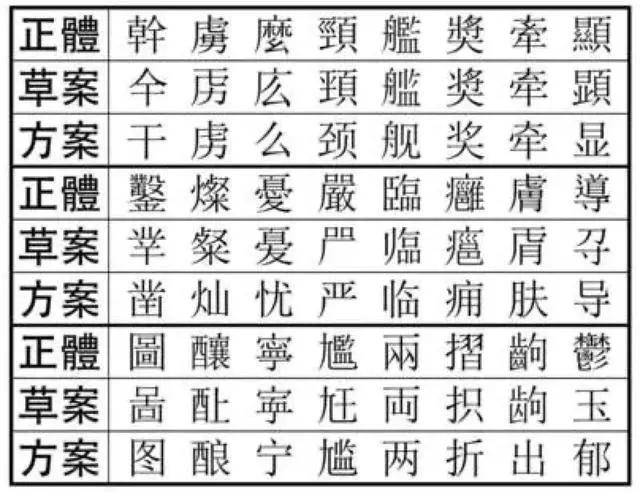 正體 幹 虜 麼 頸 艦 獎 牽 顯
草案 仐 虏 庅 頚 艦 奨 牵 顕
方案 干 虏 么 颈 舰 奖 牵 显
正體 鑿 燦 憂 嚴 臨 癰 膚 導
草案 粲 憂
方案 凿 灿 忧 严 临 痈 肤 导
正體 圖 釀 寧 尷 兩 摺 齣 鬱
草案 啚 寕 尩 両 玉
方案 图 酿 宁 尴 两 折 出 郁